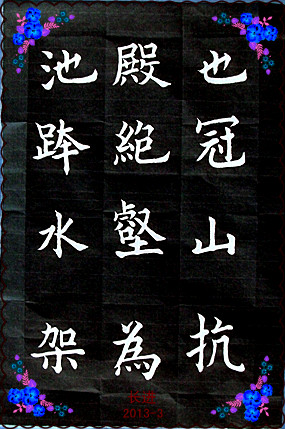 也冠山抗
殿絶壑為
池跨水架
2013-3